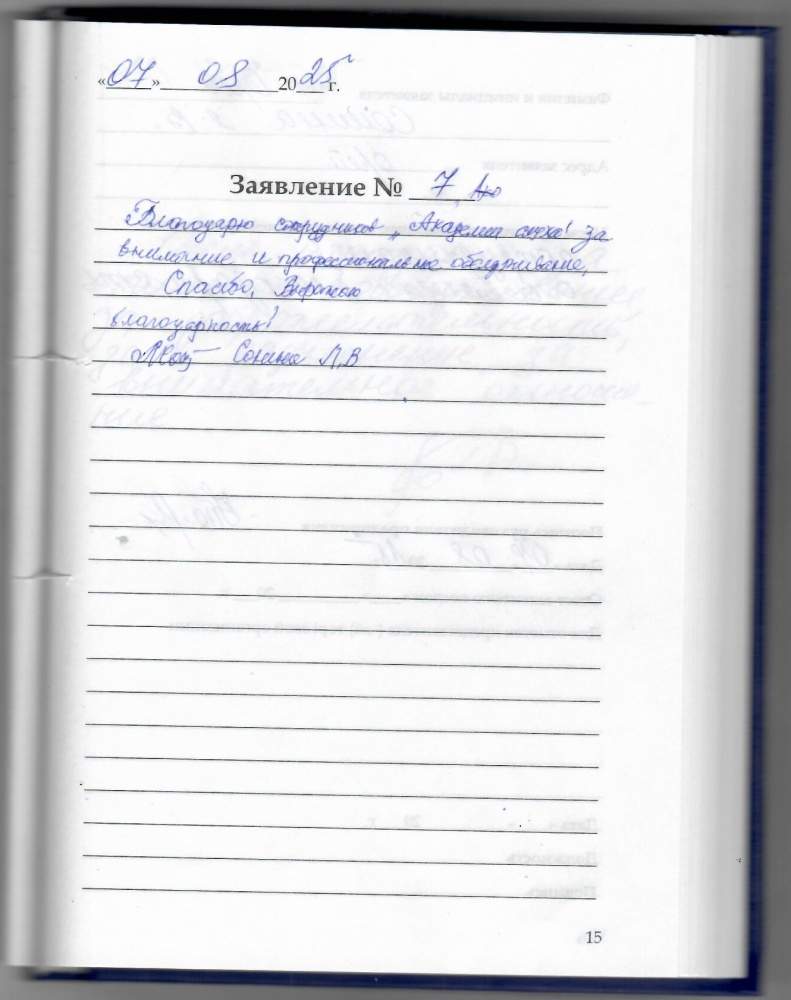 «07» 08 2025 г.
Заявление № 7
Благодарю сотрудников „Академия слуха" за
внимание и профессиональное обслуживание,
Спасибо, Выражаю
благодарность!
Сонина Л.В
15